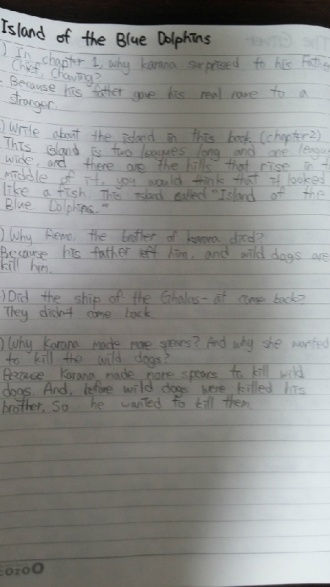 Island of the Blue Dolphins
) In chapter 1, why karana surprised to his father
Chief, Chowig?
- Because his father gave his real name to a
stranger.
) Write about the island in this book. (chapter2)
This island is two leagues long and one league
wide, and there are the hills that rise in
middle of it, you would think that it looked
like a fish. This island called "Island of the
Blue Dolphins."
) Why Ramo, the brother of karana died?
Because his father him, and wild dogs are
kill him.
) Did the ship of the Ghalas-at come back?
They didn't come back
) Why Karana made more spears? And why she wanted
to kill the wild dogs?
Because Karana made more spears to kill wild
dogs. And, before wild dogs were killed his
brother. So he wanted to kill them.